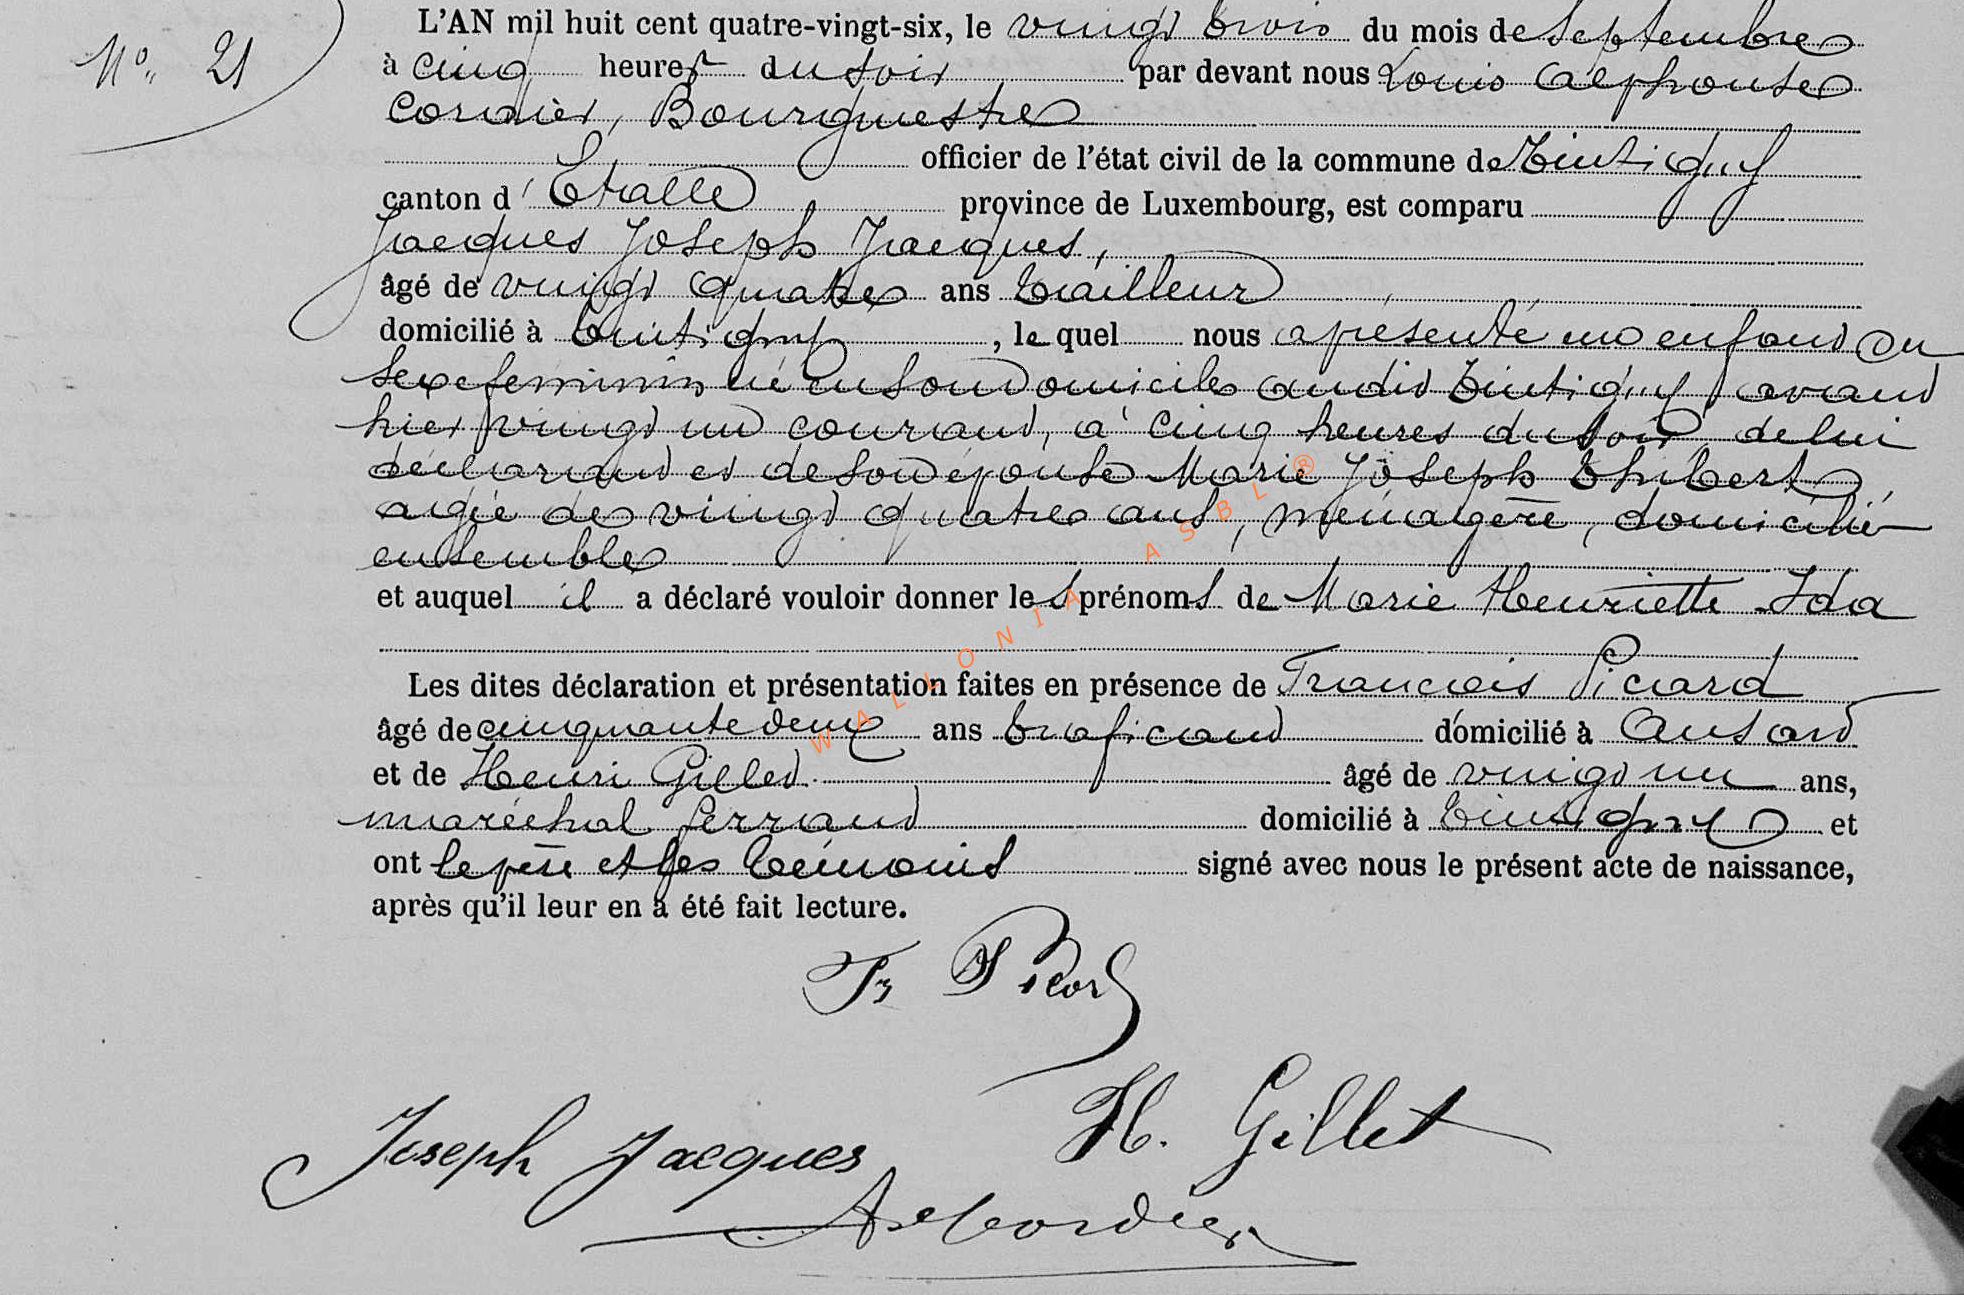 N° 21
L'AN mil huit cent quatre-vingt-six, le vingt trois du mois de Septembre
à cinq heures du soir par devant nous Louis Alphonse
Cordier, Bourgmestre
officier de l'état civil de la commune de Tintigny
canton d'Etalle province de Luxembourg, est comparu
Jacques Joseph Jacques,
âgé de vingt quatre ans tailleur
domicilié à Tintigny, lequel nous a présenté un enfant du
sexe feminin né en son domicile audit Tintigny avant
hier vingt un courant, à cinq heures du soir, de lui
déclarant et de son épouse Marie Joseph Thibert,
agée de vingt quatre ans, ménagère, domicilié
ensemble
et auquel il a déclaré vouloir donner les prénoms de Marie Henriette Ida
Les dites déclaration et présentation faites en présence de Francois Picard
âgé de cinquante deux ans traficant domicilié à Ansart
et de Henri Gillet âgé de vingt un ans,
maréchal ferrant domicilié à Tintigny et
ont le père et les témoins signé avec nous le présent acte de naissance,
après qu'il leur en a été fait lecture.
Fr Picard
H. Gillet
Joseph Jacques
Cordier
WALLONIA ASBL ®